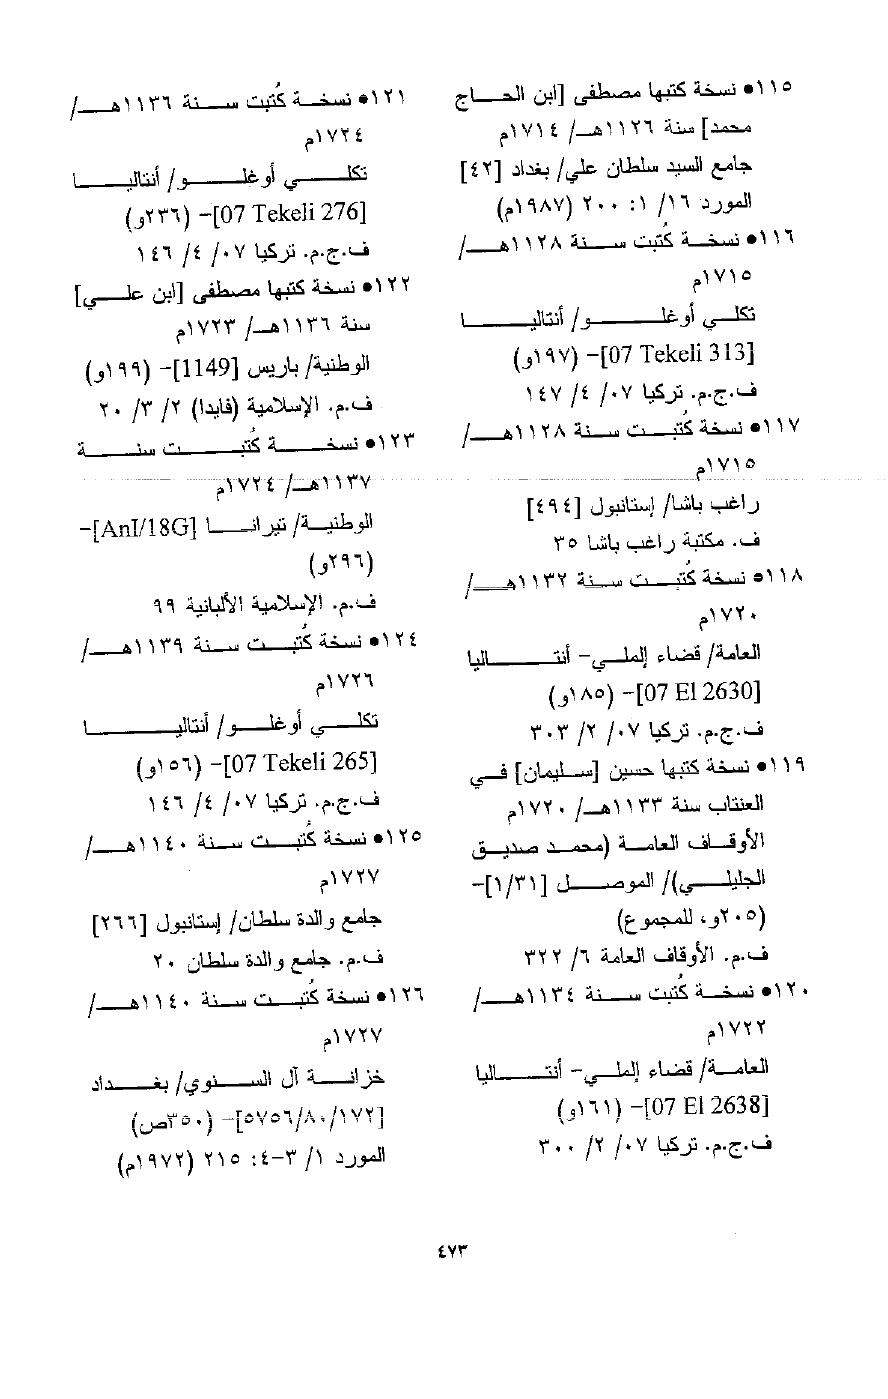 ١١٥• نسخة كتبها مصطفى [ابن الحاج
محمد] سنة ١١٢٦هـ/ ١٧١٤م
جامع السيد سلطان علي/ بغداد [٤٢]
المورد ١٦/ ١: ٢٠٠ (١٩٨٧م)
١١٦• نسخة كُتبت سنة ١١٢٨هـ/
١٧١٥م
تكلي أوغلو/ أنتاليا
[07 Tekeli 313]– (١٩٧و)
ف.ج.م. تركيا ٠٧/ ٤/ ١٤٧
١١٧• نسخة كُتبت سنة ١١٢٨هـ/
١٧١٥م
راغب باشا/ إستانبول [٤٩٤]
ف. مكتبة راغب باشا ٣٥
١١٨• نسخة كُتبت سنة ١١٣٢هـ/
١٧٢٠م
العامة/ قضاء إلملي– أنتاليا
[07 El 2630]– (١٨٥و)
ف.ج.م. تركيا ٠٧/ ٢/ ٣٠٣
١١٩• نسخة كتبها حسين [سليمان] في
العنتاب سنة ١١٣٣هـ/ ١٧٢٠م
الأوقاف العامة (محمد صديق
الجليلي)/ الموصل [١/٣١]–
(٢٠٥و، للمجموع)
ف.م. الأوقاف العامة ٦/ ٣٢٢
١٢٠• نسخة كُتبت سنة ١١٣٤هـ/
١٧٢٢م
العامة/ قضاء إلملي– أنتاليا
[07 El 2638]– (١٦١و)
ف.ج.م. تركيا ٠٧/ ٢/ ٣٠٠
١٢١• نسخة كُتبت سنة ١١٣٦هـ/
١٧٢٤م
تكلي أوغلو/ أنتاليا
[07 Tekeli 276]– (٢٣٦و)
ف.ج.م. تركيا ٠٧/ ٤/ ١٤٦
١٢٢• نسخة كتبها مصطفى [ابن علي]
سنة ١١٣٦هـ/ ١٧٢٣م
الوطنية/ باريس [1149]– (١٩٩و)
ف.م. الإسلامية (فايدا) ٢/ ٣/ ٢٠
١٢٣• نسخة كُتبت سنة
١١٣٧هـ/ ١٧٢٤م
الوطنية/ تيرانا [AnI/18G]–
(٢٩٦و)
ف.م. الإسلامية الألبانية ٩٩
١٢٤• نسخة كُتبت سنة ١١٣٩هـ/
١٧٢٦م
تكلي أوغلو/ أنتاليا
[07 Tekeli 265]– (١٥٦و)
ف.ج.م. تركيا ٠٧/ ٤/ ١٤٦
١٢٥• نسخة كُتبت سنة ١١٤٠هـ/
١٧٢٧م
جامع والدة سلطان/ إستانبول [٢٦٦]
ف.م. جامع والدة سلطان ٢٠
١٢٦• نسخة كُتبت سنة ١١٤٠هـ/
١٧٢٧م
خزانة آل السنوي/ بغداد
[٥٧٥٦/٨٠/١٧٢]– (٣٥٠ص)
المورد ١/ ٣–٤: ٢١٥ (١٩٧٢م)
٤٧٣